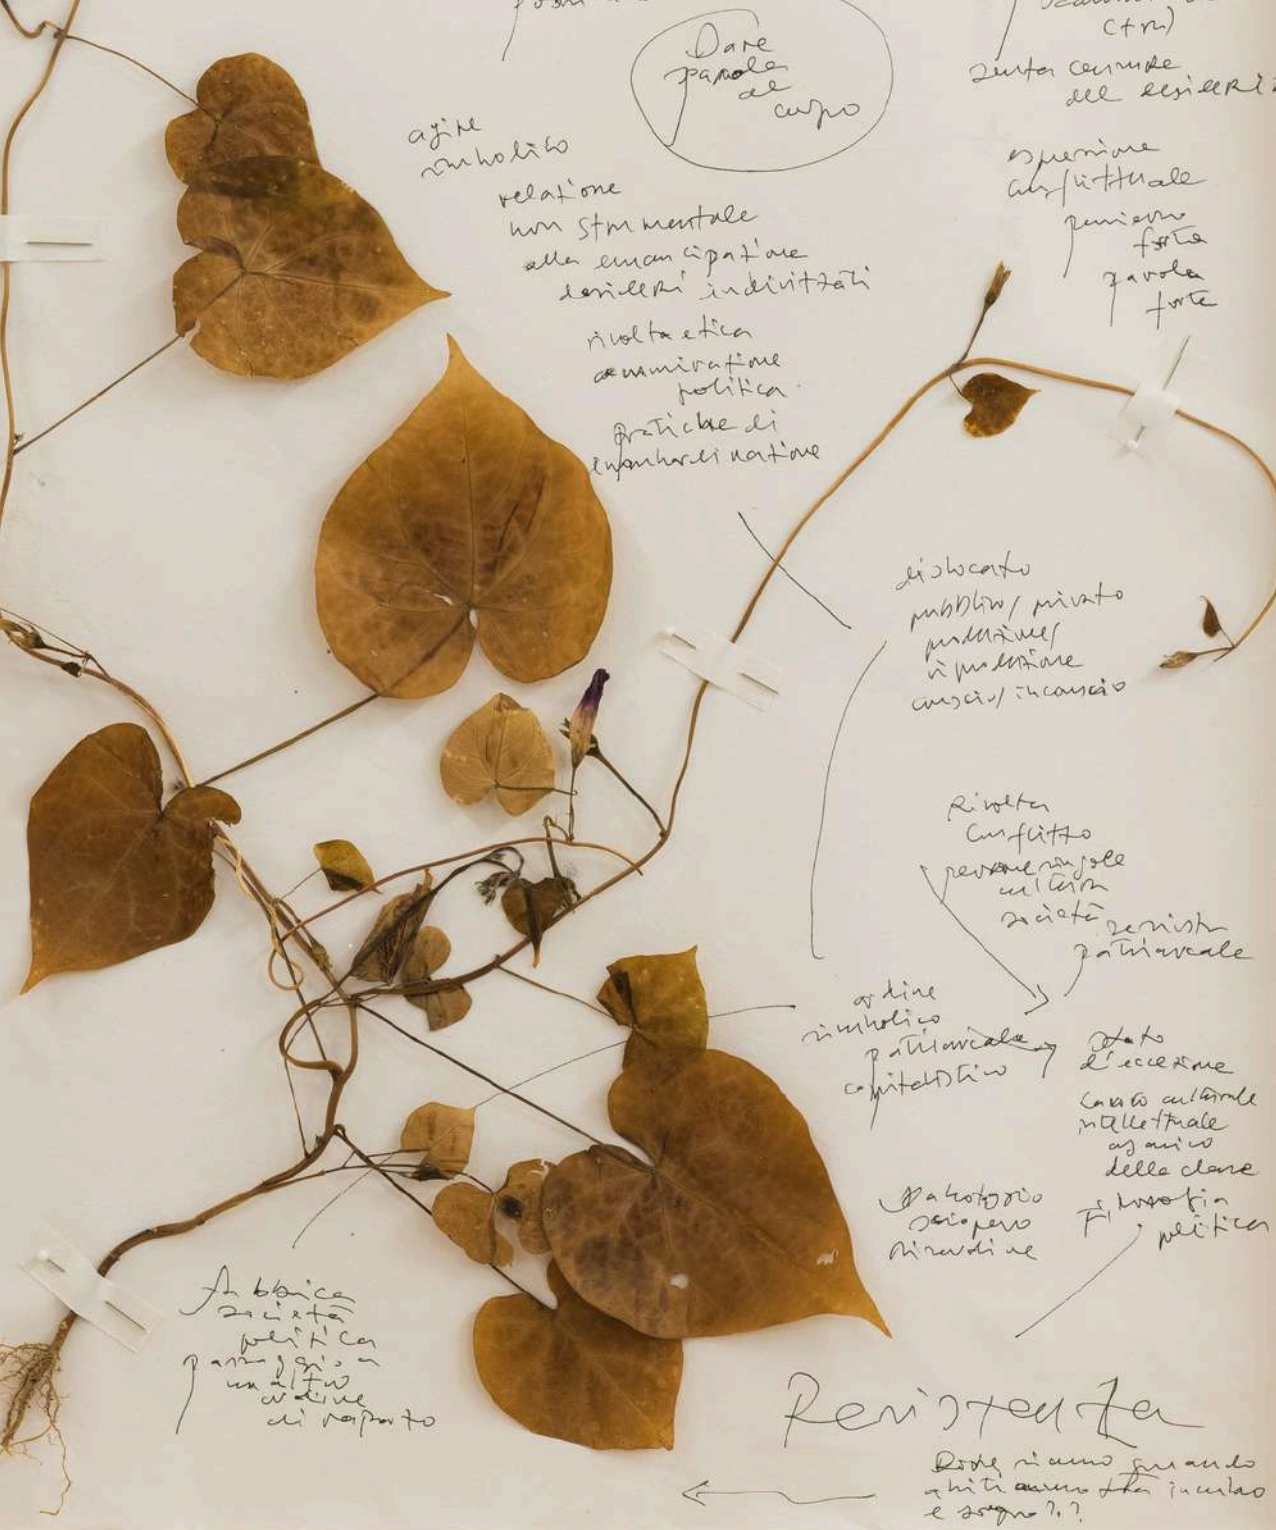 Dare
parola
al
corpo
(tra)
senza censure
dei desideri
agire
simbolico
relazione
non strumentale
alla emancipazione
desideri indivi
rivolta etica
politica
pratiche di
espressione
conflittuale
pensiero
forte
parola
forte
dislocato
pubblico/privato
produzione/
riproduzione
conscio/inconscio
Rivolta
Conflitto
persone singole
cultura
società
patriarcale
ordine
simbolico
patriarcale
capitalistico
Stato
d'eccezione
culturale
intellettuale
organico
della classe
Filosofia
politica
Sabotaggio
sciopero
Fabbrica
società
politica
passaggio a
un altro
ordine
di rapporto
Resistenza
siamo quando
abitiamo tra incubo
e sogno?.?